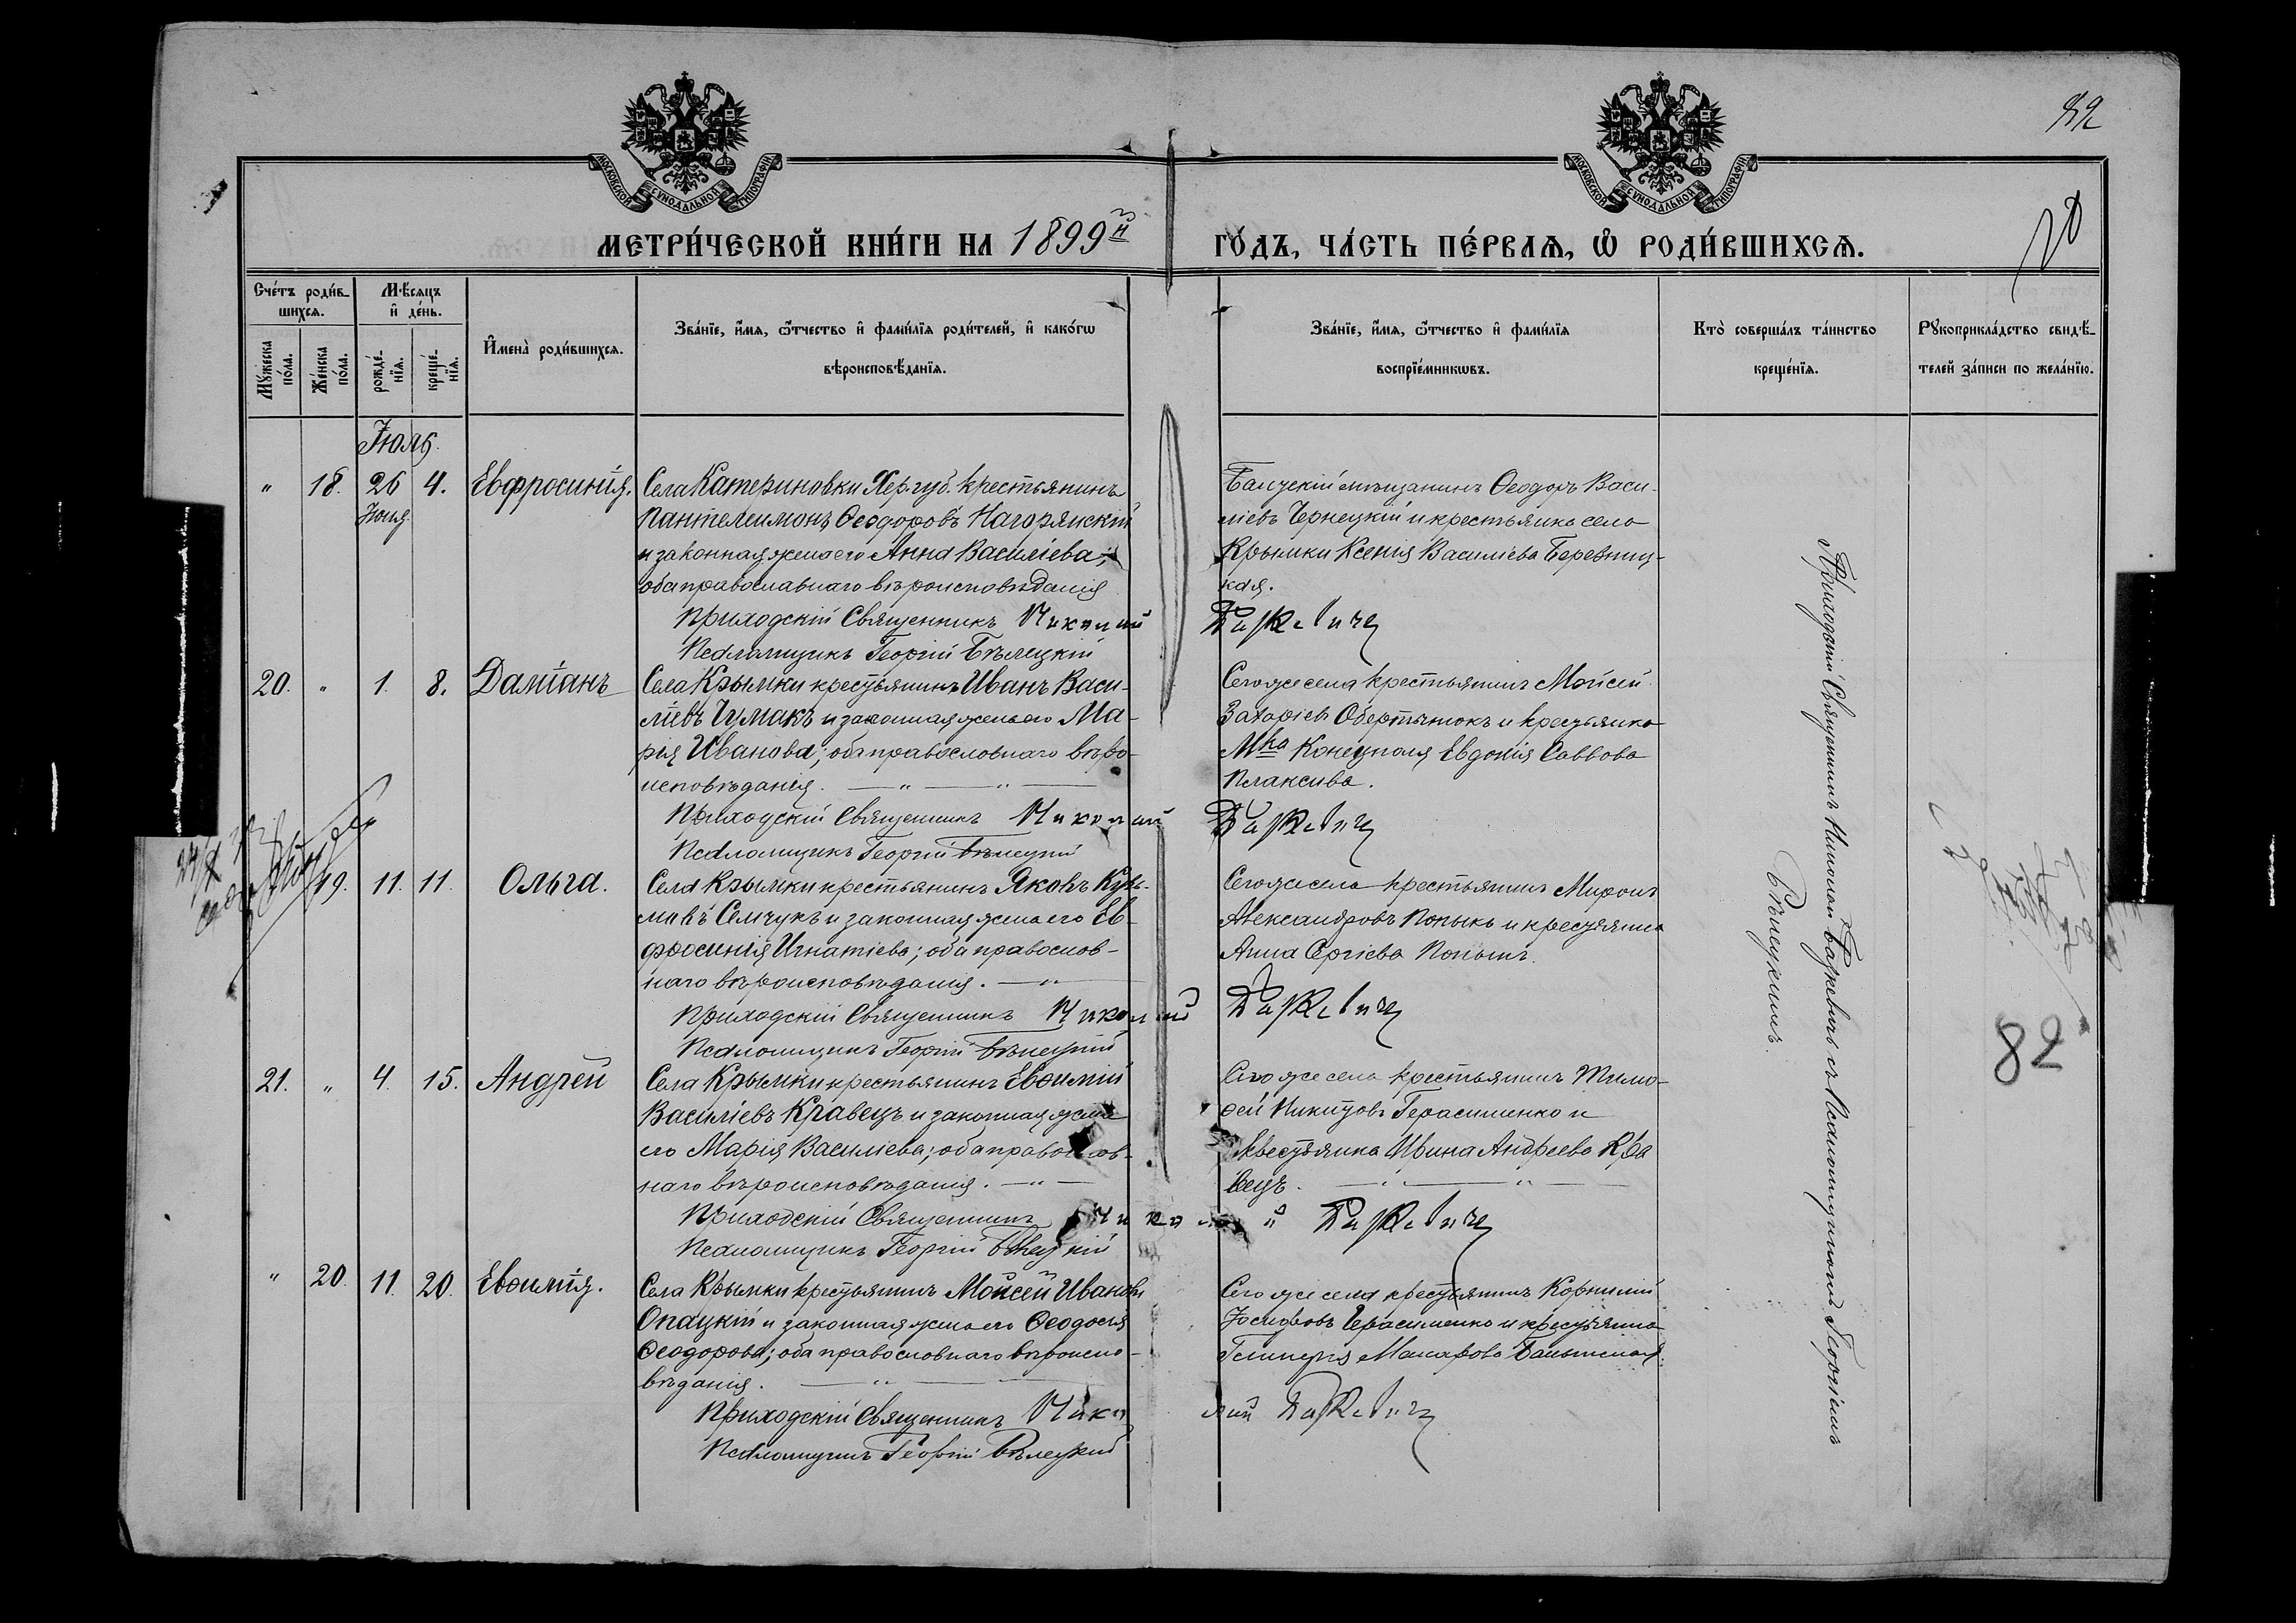 82
МОСКОВСКОЙ СУНОДАЛЬНОЙ ТИПОГРАФІИ
МОСКОВСКОЙ СУНОДАЛЬНОЙ ТИПОГРАФІИ
МЕТРИ́ЧЕСКОЙ КНИ́ГИ НА 1899й ГО́ДЪ, ЧА́СТЬ ПЕ́РВАѦ, Ѡ҆ РОДИ́ВШИХСѦ.
Сче́тъ роди́в-
шихсѧ.
Мꙋ́жеска
по́ла.
Же́нска
по́ла.
Мѣ́сѧцъ
и҆ де́нь.
рожде́-
нїѧ.
креще́-
нїѧ.
И҆мена̀ роди́вшихсѧ.
Зва́нїе, и҆́мѧ, ѻ҆́тчество и҆ фами́лїѧ роди́телей, и҆ како́гѡ
вѣроисповѣ́данїѧ.
Зва́нїе, и҆́мѧ, ѻ҆́тчество и҆ фами́лїѧ
воспрїе́мникѡвъ.
Кто̀ соверша́лъ та́инство
креще́нїѧ.
Рꙋкоприкла́дство свидѣ́-
телей за́писи по жела́нїю.
Іюль.
" 18. 26 4. Евфросинія.
Іюня
Села Катериновки Хер. губ. крестьянинъ
Пантелеимонъ Ѳеодоровъ Нагорянскій
и законная жена его Анна Василіева;
оба православнаго вѣроисповѣданія
Приходскій Священникъ Николай Базкевичъ
Псаломщикъ Георгій Бѣлецкій
мѣщанинъ Ѳеодоръ Васи-
ліевъ Чернецкій и крестьянка села
Крымки Ксенія Василіева Березниц-
кая.
20. " 1. 8. Даміанъ
Села Крымки крестьянинъ Иванъ Васи-
ліевъ Чумакъ и законная жена его Ма-
рія Иванова; оба православнаго вѣро-
исповѣданія. — " — " —
Приходскій Священникъ Николай Базкевичъ
Псаломщикъ Георгій Бѣлецкій
Сего же села крестьянинъ Моисей
Захаріевъ и крестьянка
Мка Конецполя Евдокія Саввова
Плаксива.
" 19. 11. 11. Ольга.
Села Крымки крестьянинъ Яковъ Кузь-
мовъ Семчукъ и законная жена его Ев-
фросинія Игнатіева; оба православ-
наго вѣроисповѣданія. — " —
Приходскій Священникъ Николай Базкевичъ
Псаломщикъ Георгій Бѣлецкій
Сего же села крестьянинъ Миронъ
Александровъ Попыкъ и крестьянка
Анна Сергіева
21. " 4. 15. Андрей
Села Крымки крестьянинъ Евѳимій
Василіевъ Кравецъ и законная жена
его Марія Василіева; оба православ-
наго вѣроисповѣданія. — " —
Приходскій Священникъ Николай Базкевичъ
Псаломщикъ Георгій Бѣлецкій
Сего же села крестьянинъ Тимо-
ѳей Никитовъ Герасименко и
крестьянка Ирина Андреева Кра
вецъ. — " — " —
" 20. 11. 20. Евѳимія.
Села Крымки крестьянинъ Моисей Ивановъ
Опацкій и законная жена его Ѳеодосія
Ѳеодорова; оба православнаго вѣроиспо-
вѣданія. — " —
Приходскій Священникъ Николай Базкевичъ
Псаломщикъ Георгій Бѣлецкій
Сего же села крестьянинъ Корнилій
Іосифовъ Герасименко и крестьянка
Гликерія Макарова
Приходскій Священникъ Николай Базкевичъ съ Псаломщикомъ Георгіемъ
Бѣлецкимъ.
82